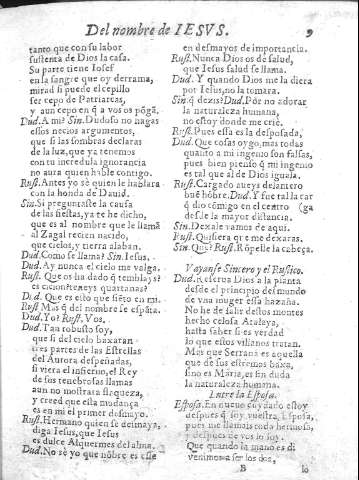 Del nombre de IESVS. 9
tanto que con su labor
sustenta de Dios la casa.
Su parte tiene Iosef
en la sangre que oy derrama,
mirad si puede el cepillo
ser cepo de Patriarcas,
y aun cepo en q̃ a vos os põgã.
Dud. A mi? Sin. Dudoso no hagas
essos necios argumentos,
que si las sombras declaras
de la luz, que ya tenemos
con tu incredula ignorancia
no aura quien hable contigo.
Rust. Antes yo sè quien le hablara
con la honda de Dauid.
Sin. Si preguntaste la causa
de las fiestas, ya te he dicho,
que es al nombre que le llamã
al Zagal recien nacido,
que cielos, y tierra alaban.
Dud. Como se llama? Sin. Iesus.
Dud. Ay nunca el cielo me valga.
Rust. Que os ha dado q̃ temblays?
es ciciones quartanas?
Dud. Que es esto que siẽto en mi.
Rust. Mas q̃ del nombre se espãta.
Dud. Yo? Rust. Vos.
Dud. Tan robusto soy,
que si del cielo baxaran
tres partes de las Estrellas
del Aurora despeñadas,
si viera el infierno, el Rey
de sus tenebrosas llamas
aun no mostrara flaqueza,
y creed que esta mudança
es en mi el primer desmayo.
Rust. Hermano quien se desmaya,
diga Iesus, que Iesus
es dulce Alquermes del alma.
Dud. No sè yo que nõbre es esse
en desmayo de importancia.
Rust. Nunca Dios os dè salud,
que Iesus salud se llama.
Dud. Y quando Dios me la diera
por Iesus, no la tomara.
Sin. q̃ dezis? Dud. Por no adorar
la naturaleza humana,
no estoy donde me criè.
Rust. Pues essa es la desposada,
Dud. Que cosas oygo, mas todas
quanto a mi ingenio son falsas,
pues bien pienso q̃ mi ingenio
es tal que al de Dios iguala.
Rust. Cargado aueys delantero
buẽ hõbre. Dud. Y fue tal la car
q̃ dio cõmigo en el centro (ga
desde la mayor distancia.
Sin. Dexale vamos de aqui.
Rust. Quisiera que me dexaras.
Sin. Que? Rust. Rõpelle la cabeça.
Vayanse Sincero y el Rustico.
Dud. Rescrua Dios a la planta
desde el principio del mundo
de vna muger essa hazaña.
No he de salir destos montes
hecho celosa Atalaya,
hasta saber si es verdad
lo que estos villanos tratan.
Mas que Serrana es aquella
que de sus estremos baxa,
sino es Maria, es sin duda
la naturaleza humana.
Entre la Esposa.
Esposa. En nueuo cuydado estoy
despues q̃ soy vuestra Esposa,
pues me llamais todo hermoso,
y despues de vos lo soy.
Que quando la mano os di
venimos a ser los dos,
B lo